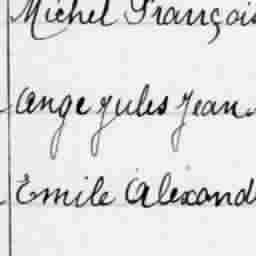 Michel François
Ange Jules Jean
Emile Alexand